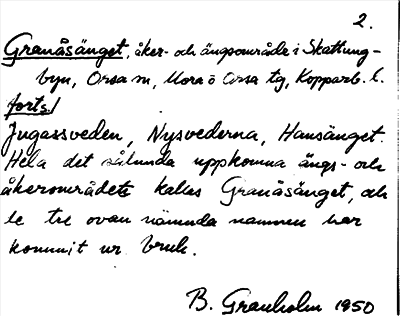 2.
Granåsänget, åker- och ängsområde i Skattung-
byn, Orsa sn, Mora o Orsa tg, Kopparb. l.
forts/
Jugassveden, Nysvederna, Hansänget.
Hela det sålunda uppkomna ängs- och
åkerområdete kallas Granåsänget, och
de tre ovan nämnda namnen har
kommit ur bruk.
B. Granholm 1950